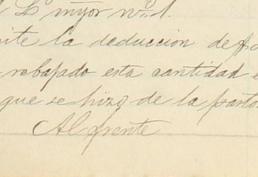 l L mayor nº 1.
ite la deduccion de
rebajado esta cantidad
que se hizo de la
Al frente